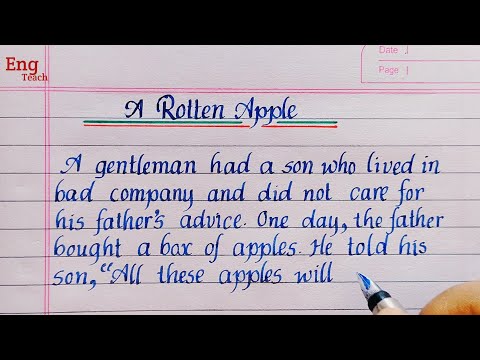 Eng
Teach
Date
Page
A Rotten Apple
A gentleman had a son who lived in
bad company and did not care for
his father's advice. One day, the father
bought a box of apples. He told his
son, "All these apples will